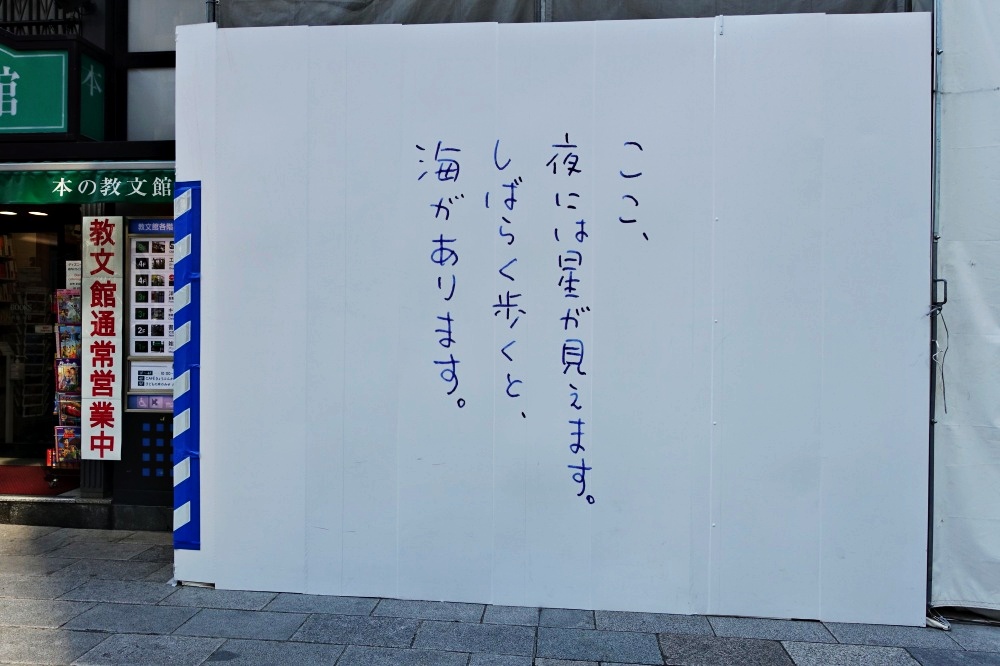 ここ、
夜には星が見えます。
しばらく歩くと、
海があります。
館
本
本の教文館
教文館通常営業中
教文館各階